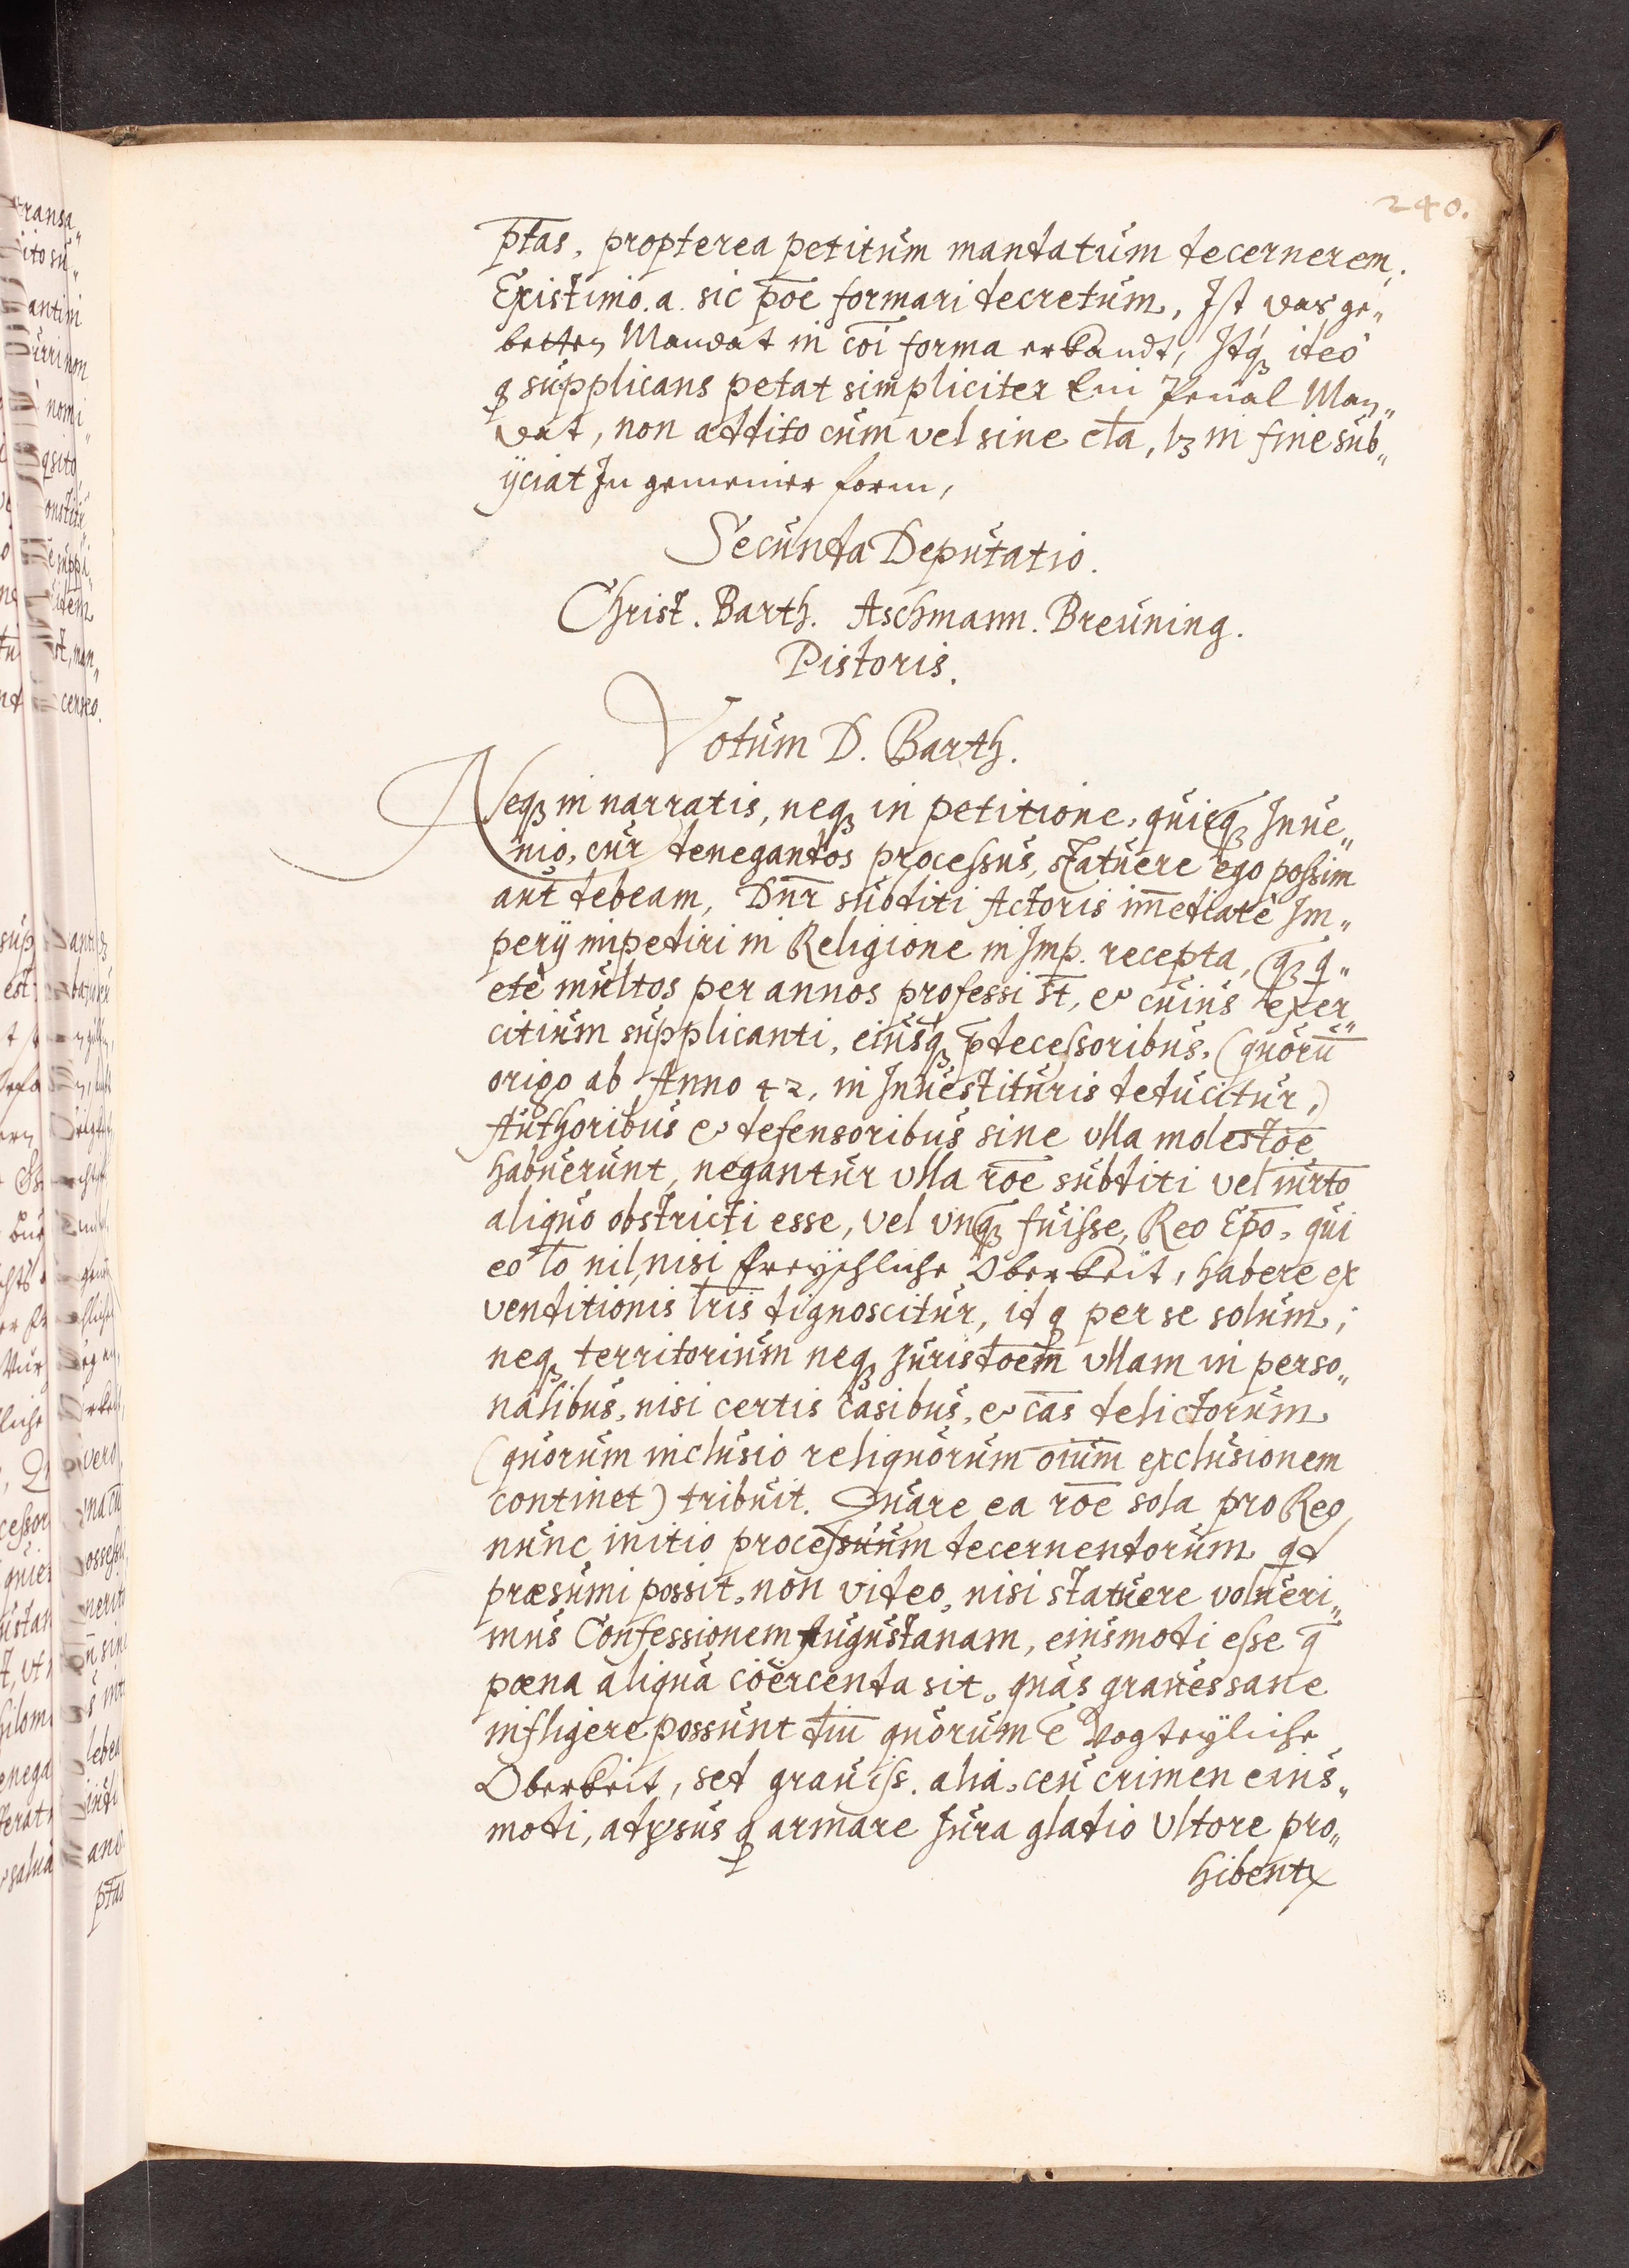 240.
p̄tas, propterea petitum mandatum decernerem.
Existimo. a. sic p̄oe formari decretum, Ist das ge„
betten Mandat in c̄oi forma erkandt, Idq́ꝫ ideo
q̨ supplicans petat simpliciter Ein Penal Man„
dat, non addito cum vel sine cl̄a, lꝫ in fine sub„
ijciat In gemeiner form,
Secunda Deputatio.
Christ. Barth. Aschmann. Breuning.
Pistoris.
Votum D. Barth.
Neqꝫ in narratis, neqꝫ in petitione, quicq̄ꝫ Inue„
nio, cur denegandos processus, statuere ego possim
aut debeam, Dn̄r subditi Actoris im̄ediatè Im„
perij impediri in Religione in Imp. recepta, q̄ꝫ q̄„
etè multos per annos professi s̄t, et cuius exer„
citium supplicanti, eiusq́ꝫ p̄decessoribus, (quorū
origo ab Anno 42, in Inuestituris deducitur,)
Authoribus et defensoribus sine vlla molestōe
habuerunt, negantur vlla r̄oe subditi vel iur̄to
aliquo obstricti esse, vel vnq̄ꝫ fuisse, Reo Ep̄o, qui
eo l̄o nil, nisi freyschliche Oberkeit, habere ex
venditionis l̄ris dignoscitur, id q̨ per se solum,
neqꝫ territorium neqꝫ Jurisd̄oem vllam in perso„
nalibus, nisi certis casibus, et cā̄s delictorum
(quorum inclusio reliquorum oiū̄m exclusionem
continet) tribuit. Quare ea r̄oe sola pro Reo
nunc initio processuum decernendorum qd
præsumi possit, non video, nisi statuere volueri„
mus Confessionem Augustanam, eiusmodi esse q̄
pœna aliqua coërcenda sit, quas graues sane
infligere possunt d̄ni quorum ē Vogteyliche
Oberkeit, sed grauiss. alia, ceu crimen eius„
modi, adv̄sus q̨ armare Jura gladio Vltore pro„
hibentx